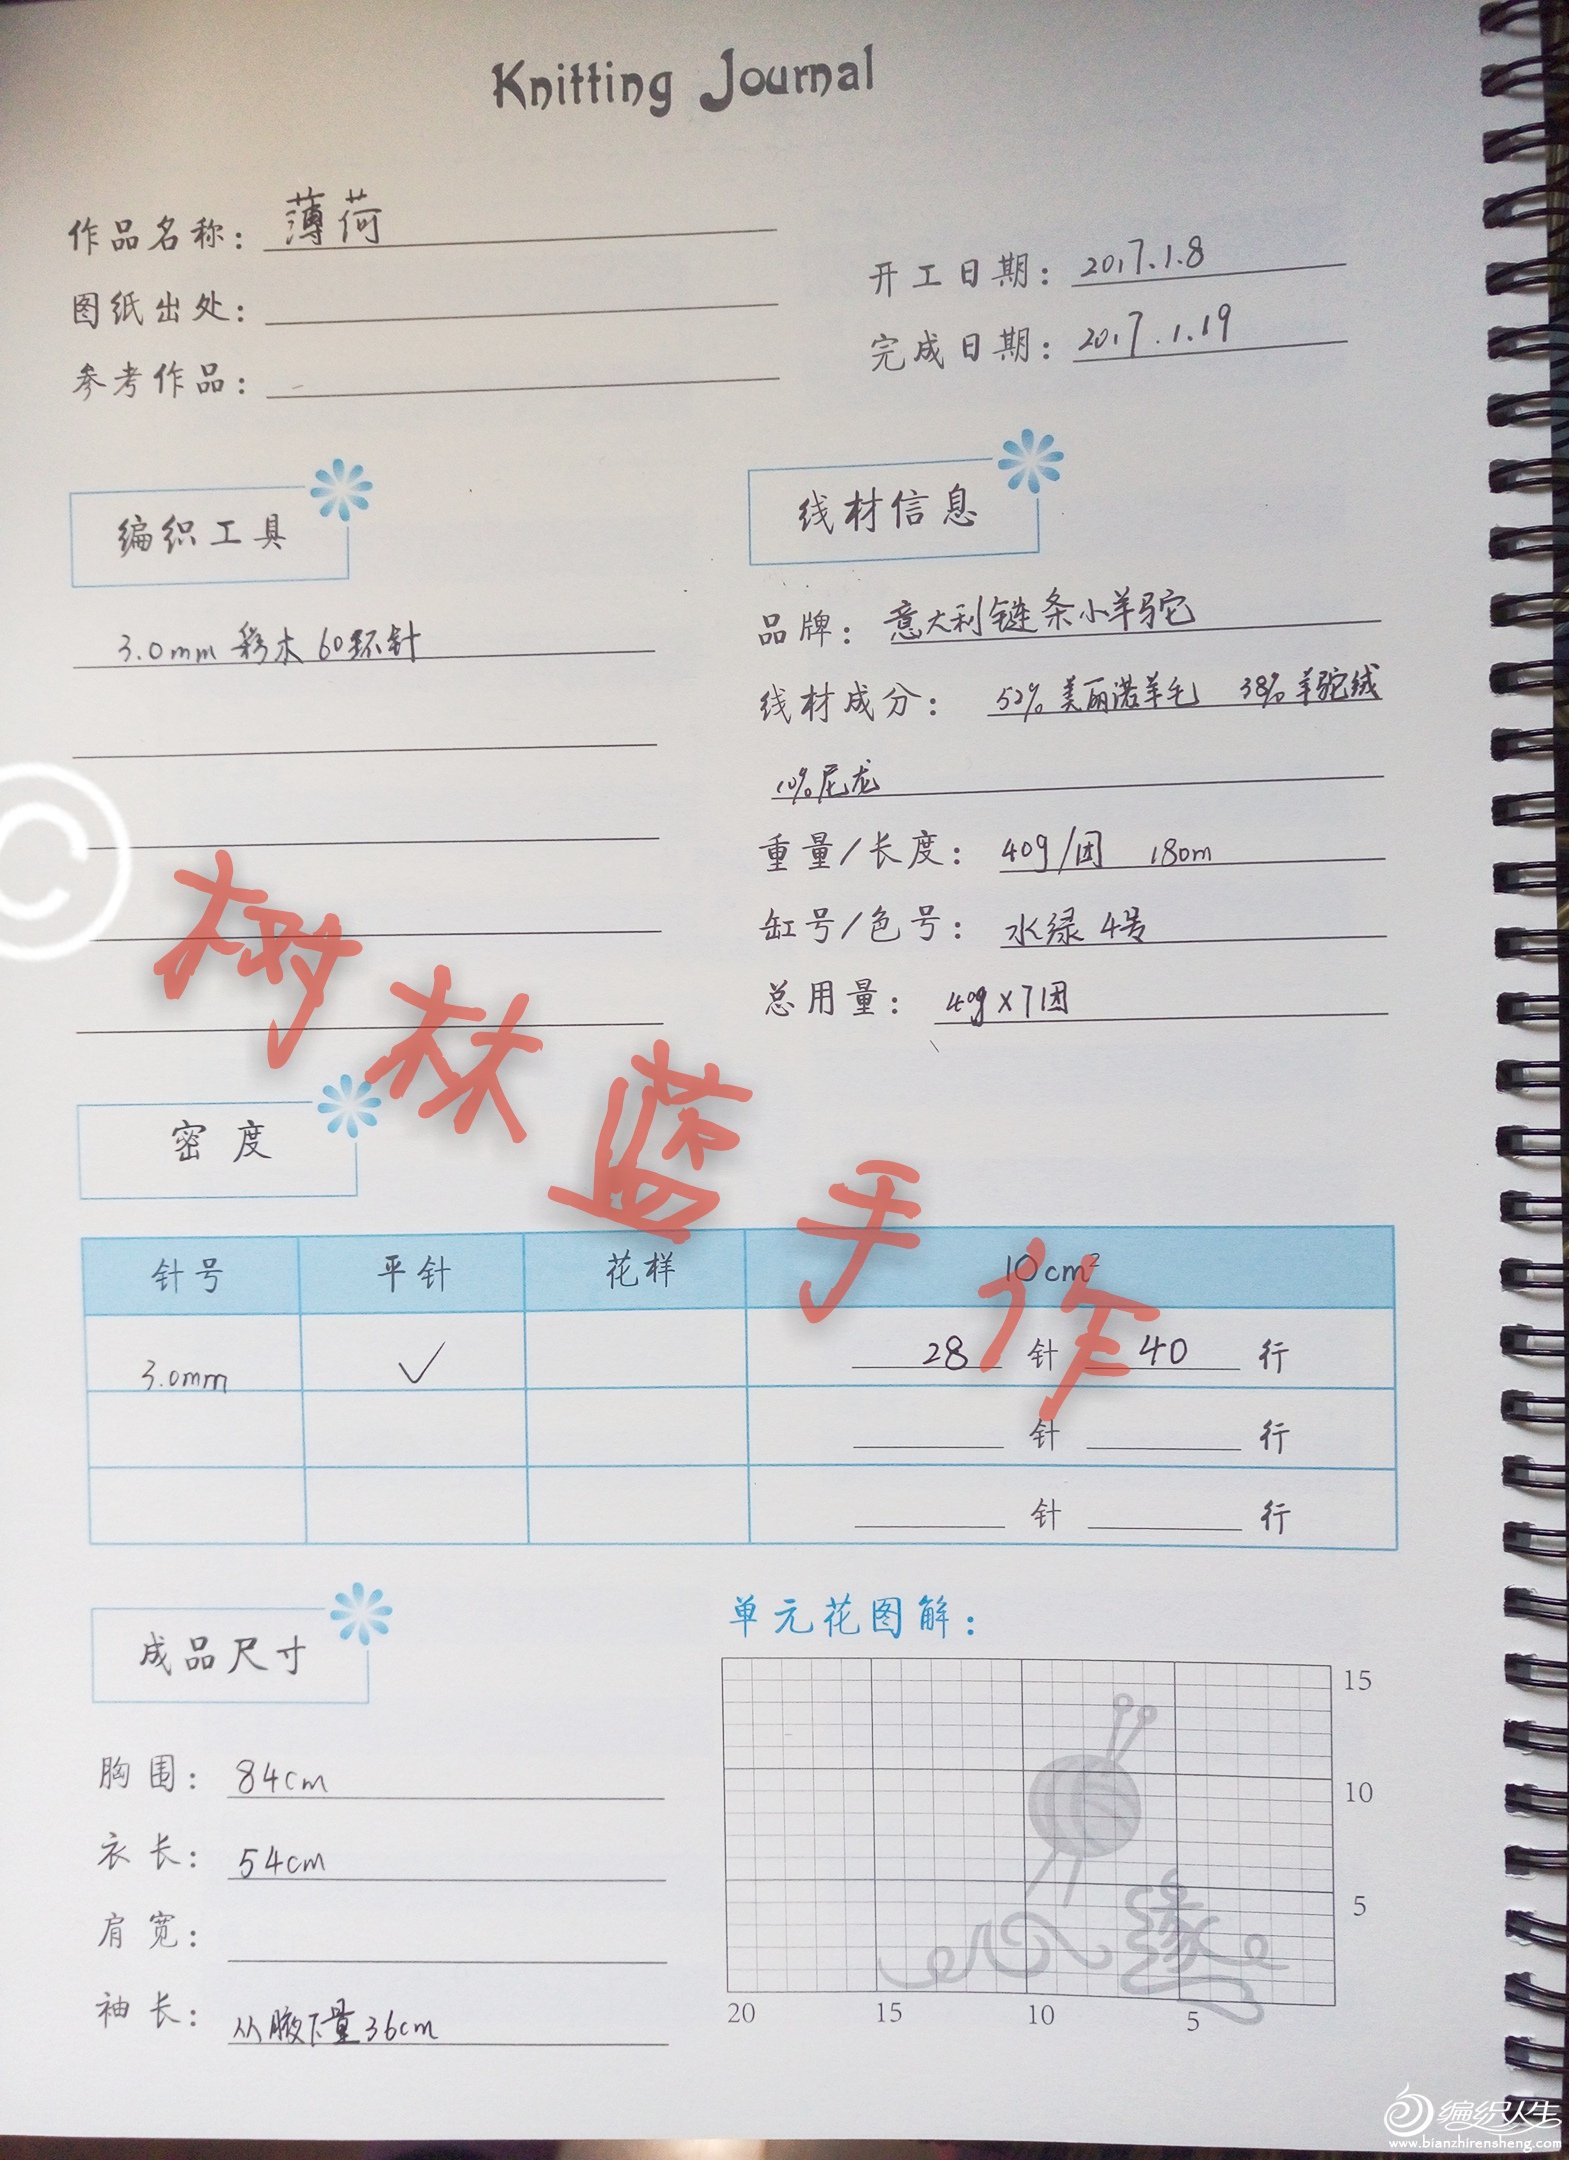 Knitting Journal
作品名称：薄荷
图纸出处：
参考作品：
开工日期：2017.1.8
完成日期：2017.1.19
编织工具
3.0mm 彩木 60环针
线材信息
品牌：意大利链条小羊驼
线材成分：52%美丽诺羊毛 38%羊驼绒
10%尼龙
重量/长度：40g/团 180m
缸号/色号：水绿 4号
总用量：40g×7团
树林蓝手作
密度
针号 平针 花样 10cm²
3.0mm ✓ 28 针 40 行
针 行
针 行
成品尺寸
胸围：84cm
衣长：54cm
肩宽：
袖长：从腋下量36cm
单元花图解：
15
10
5
20 15 10 5
心缘
编织人生
www.bianzhirensheng.com